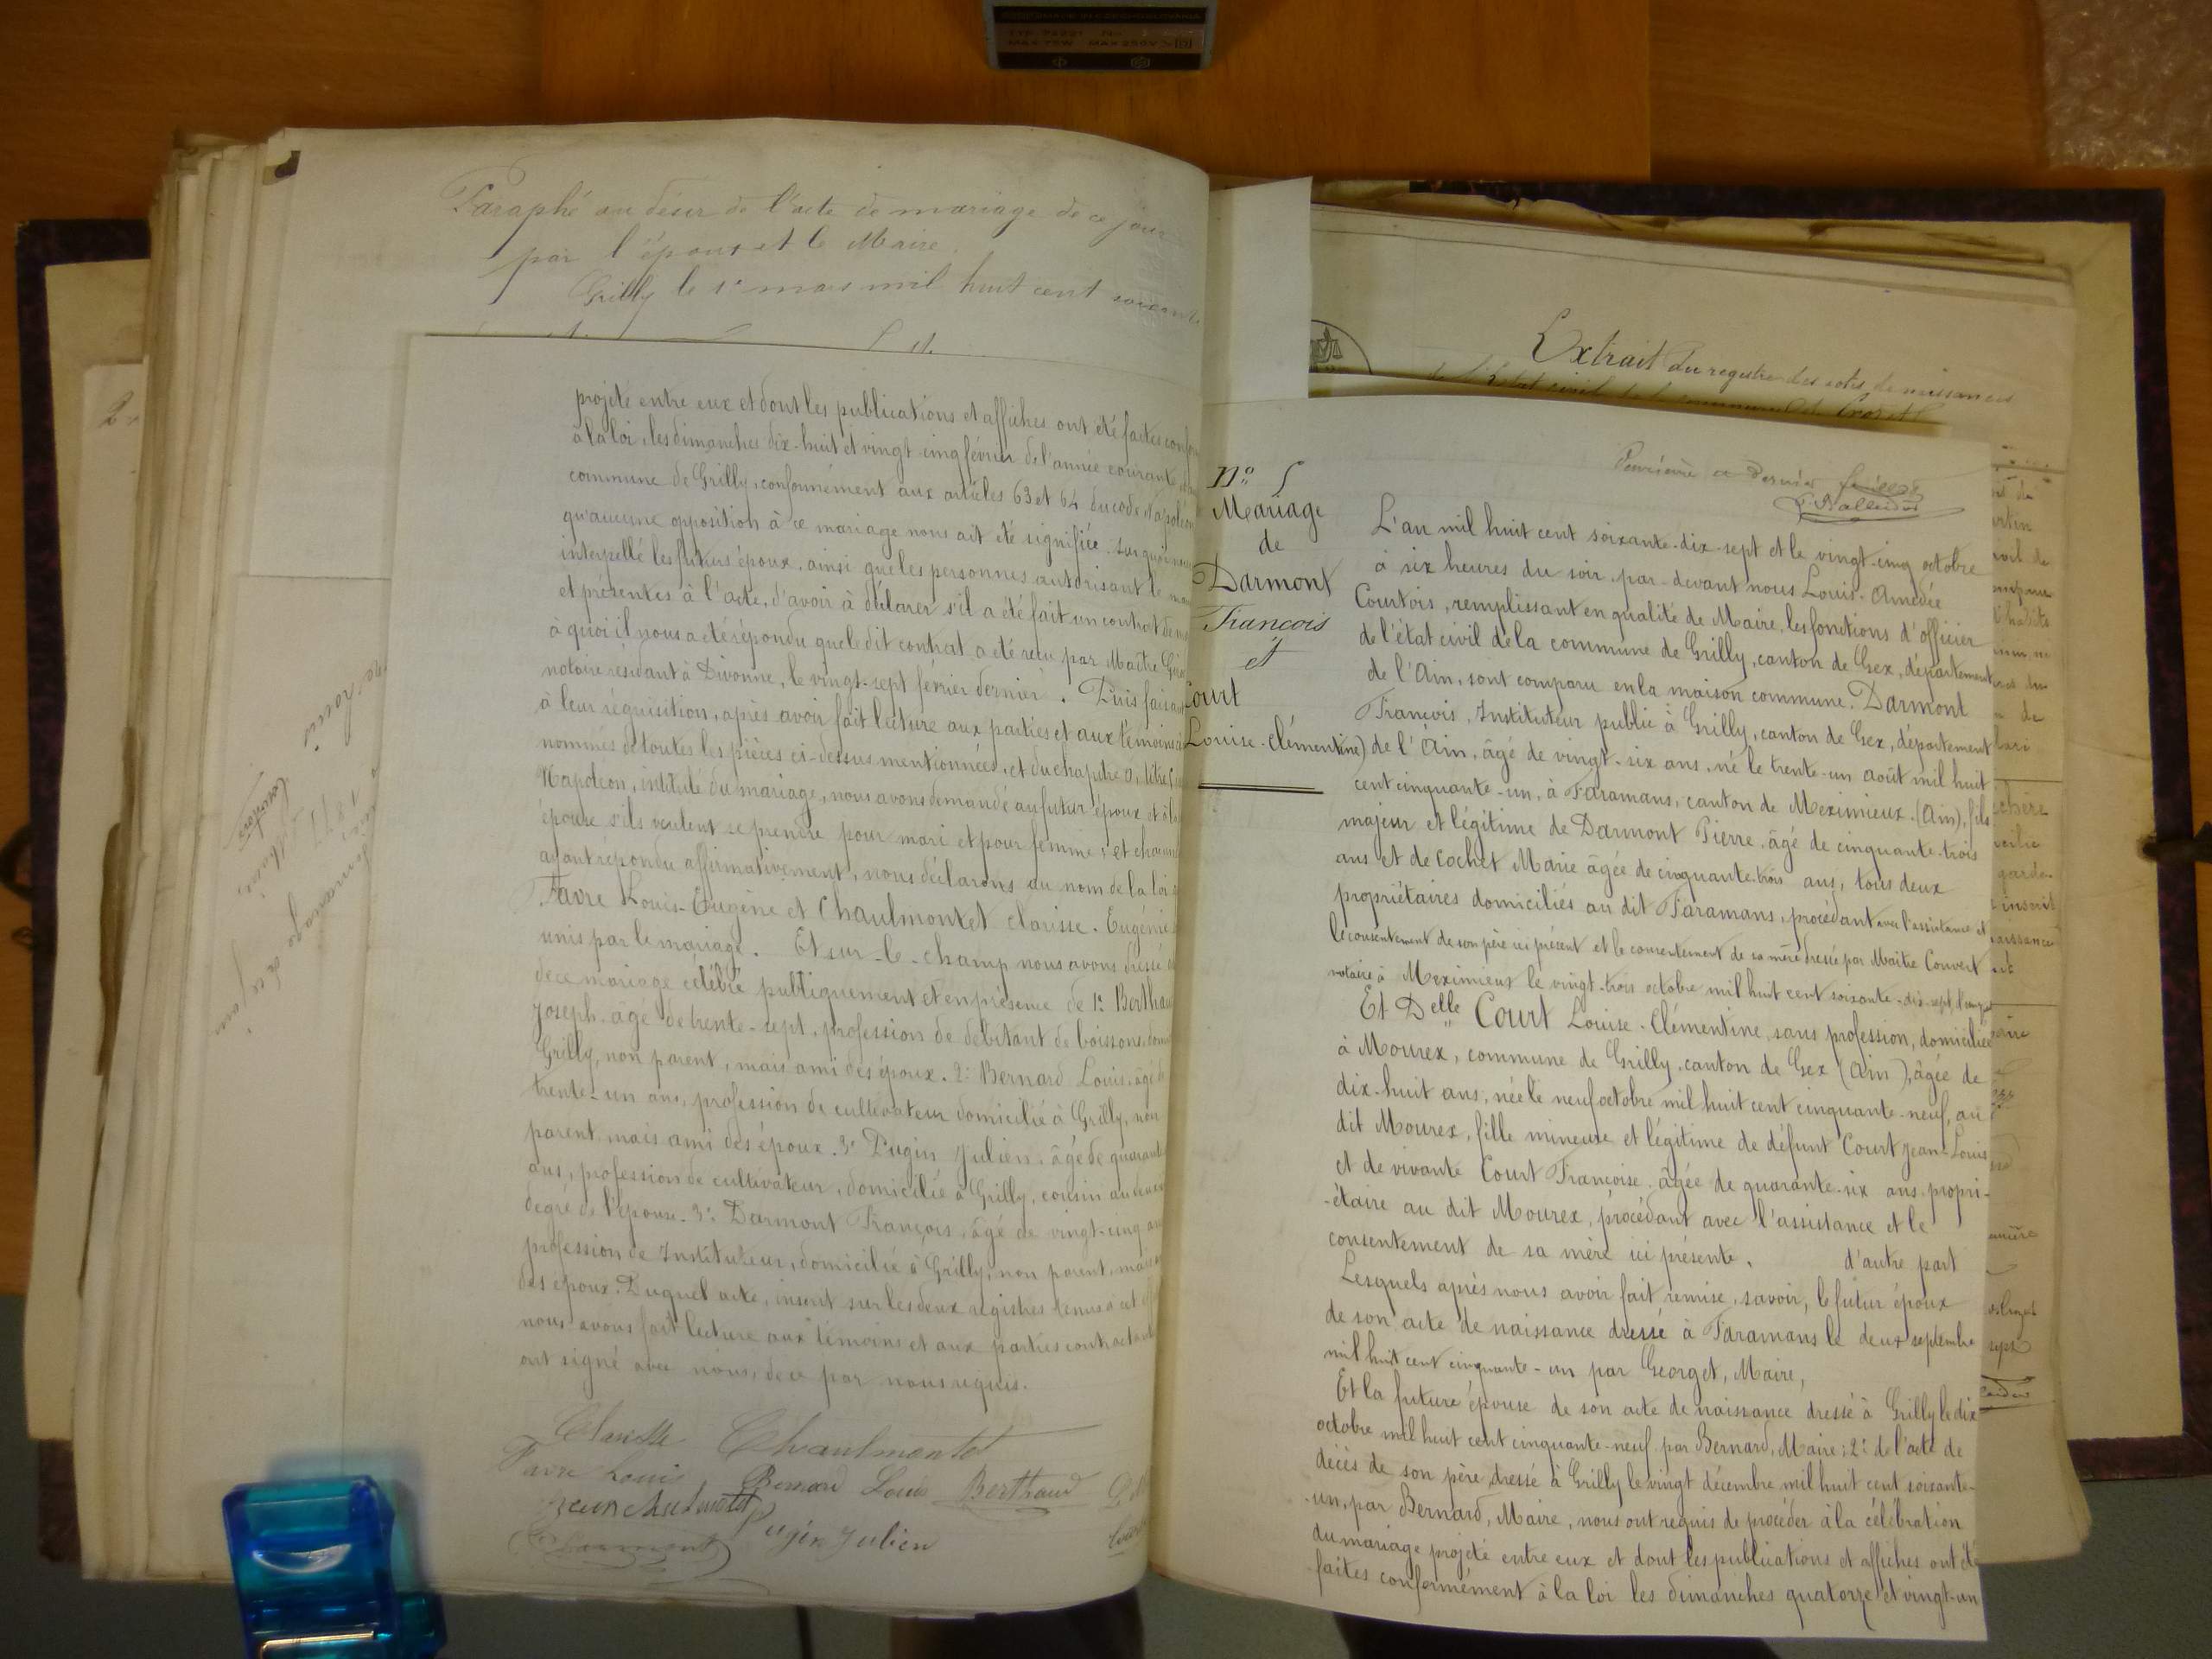 MAX 75W MAX 250V
Paraphé au désir de l'acte de mariage de ce jour
par l'époux et le Maire.
Grilly le 1r mars mil huit cent soixante
projeté entre eux et dont les publications et affiches ont été faites
à la loi, les dimanches dix-huit et vingt-cinq février de l'année courante,
commune de Grilly, conformément aux articles 63 et 64 du code Napoléon
qu'aucune opposition à ce mariage nous ait été signifiée. Sur quoi
interpellé les futurs époux, ainsi que les personnes autorisant le
et présentes à l'acte, d'avoir à déclarer s'il a été fait un contrat de
à quoi il nous a été répondu que le dit contrat a été reçu par Maître
notaire résidant à Divonne, le vingt-sept février dernier. Puis faisant
à leur réquisition, après avoir fait lecture aux parties et aux témoins
nommés de toutes les pièces ci-dessus mentionnées, et du chapitre
Napoléon, intitulé du mariage, nous avons demandé au futur époux et à la
épouse s'ils veulent se prendre pour mari et pour femme; et chacun
ayant répondu affirmativement, nous déclarons au nom de la loi
Favre Louis-Eugène et Chaulmontet Clarisse-Eugénie
unis par le mariage. Et sur-le-champ nous avons dressé
de ce mariage célébré publiquement et en présence de 1: Berthaud
Joseph âgé de trente-sept, profession de débitant de boissons,
Grilly, non parent, mais ami des époux. 2: Bernard Louis, âgé de
trente-un ans, profession de cultivateur domicilié à Grilly, non
parent, mais ami des époux. 3e Pugin Julien, âgé de quarante
ans, profession de cultivateur, domicilié à Grilly, cousin au
degré de l'épouse. 3: Darmont François, âgé de vingt-cinq ans
profession de Instituteur, domicilié à Grilly, non parent, mais
des époux. Duquel acte, inscrit sur les deux registres tenus à cet
nous avons fait lecture aux témoins et aux parties contractantes
ont signé avec nous, de ce par nous requis.
Clarisse Chaulmontet
Favre Louis Bernard Louis Berthaud
Pugin Julien
Darmont
Extrait du registre des actes de naissances
de l'état civil de la commune de
No 5
Mariage
de
Darmont
François
et
Court
Louise-Clémentine
Premier et dernier feuillet
L'an mil huit cent soixante-dix-sept et le vingt-cinq octobre
à six heures du soir, par-devant nous Louis-Amédée
Courtois, remplissant en qualité de Maire, les fonctions d'officier
de l'état civil de la commune de Grilly, canton de Gex, département
de l'Ain, sont comparu en la maison commune. Darmont
François, Instituteur public à Grilly, canton de Gex, département
de l'Ain, âgé de vingt-six ans, né le trente-un août mil huit
cent cinquante-un, à Faramans, canton de Meximieux (Ain), fils
majeur et légitime de Darmont Pierre, âgé de cinquante-trois
ans et de Cochet Marie âgée de cinquante-trois ans, tous deux
propriétaires domiciliés au dit Faramans, procédant avec l'assistance et
le consentement de son père ici présent et le consentement de sa mère dressé par Maître Convert
notaire à Meximieux le vingt-trois octobre mil huit cent soixante-dix-sept
Et Delle Court Louise-Clémentine, sans profession, domiciliée
à Mourex, commune de Grilly, canton de Gex (Ain), âgée de
dix-huit ans, née le neuf octobre mil huit cent cinquante-neuf, au
dit Mourex, fille mineure et légitime de défunt Court Jean-Louis
et de vivante Court Françoise, âgée de quarante-six ans, propri-
-étaire au dit Mourex, procédant avec l'assistance et le
consentement de sa mère ici présente. d'autre part
Lesquels après nous avoir fait remise, savoir, le futur époux
de son acte de naissance dressé à Faramans le deux septembre
mil huit cent cinquante-un par Georget, Maire,
Et la future épouse de son acte de naissance dressé à Grilly le dix
octobre mil huit cent cinquante-neuf par Bernard, Maire; 2: de l'acte de
décès de son père, dressé à Grilly le vingt décembre mil huit cent soixante-
-un, par Bernard, Maire, nous ont requis de procéder à la célébration
du mariage projeté entre eux et dont les publications et affiches ont été
faites conformément à la loi les dimanches quatorze et vingt-un